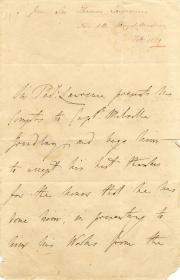 from Sir Thomas Lawrence
Sir Tho.s Lawrence presents his
Compts to Capt.n Melville
Grindlay and begs him
to accept his best thanks
for the honor that he has
done him, in presenting to
him his Works from the